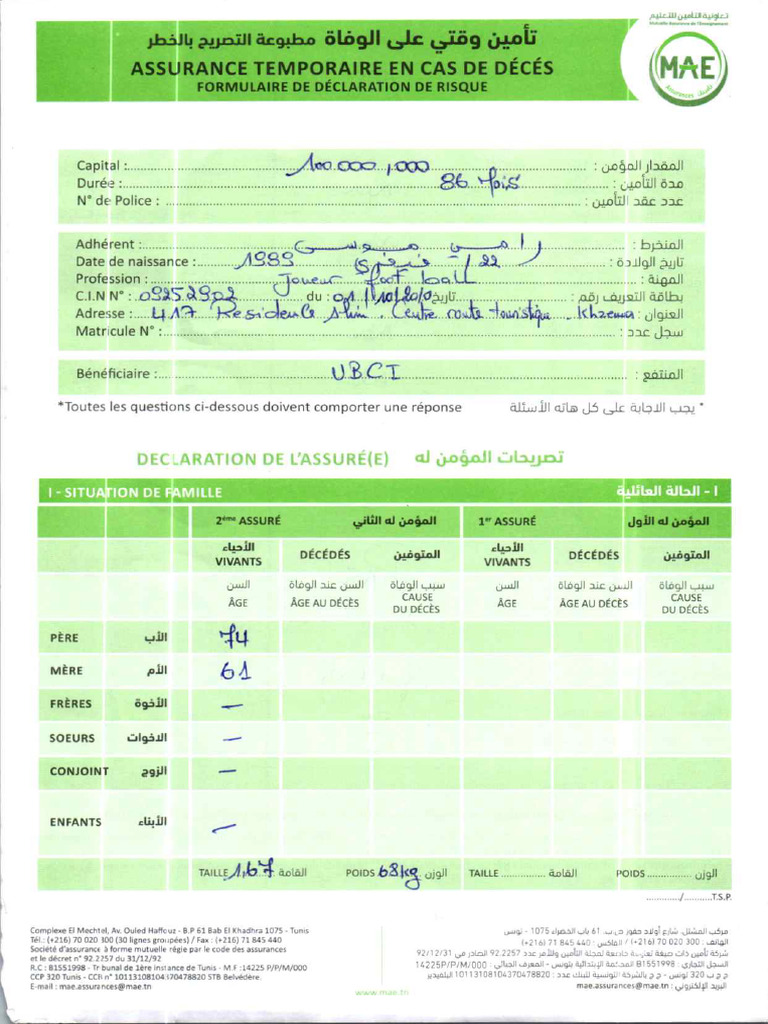 تعاونية التأمين للتعليم
Mutuelle Assurance de l'Enseignement
تأمين وقتي على الوفاة مطبوعة التصريح بالخطر
ASSURANCE TEMPORAIRE EN CAS DE DÉCÉS
FORMULAIRE DE DÉCLARATION DE RISQUE
MAE
Assurances تأمينات
Capital : 100.000,000 المقدار المؤمن :
Durée : 86 Mois مدة التأمين :
N° de Police : عدد عقد التأمين :
Adhérent : رامي موسى المنخرط :
Date de naissance : 1989 فيفري /22 تاريخ الولادة :
Profession : Joueur foot ball المهنة :
C.I.N N° : 09252902 du : 01/10/2010 تاريخ بطاقة التعريف رقم :
Adresse : 417 Residence Centre route touristique Khzema العنوان :
Matricule N° : سجل عدد :
Bénéficiaire : UBCI المنتفع :
*Toutes les questions ci-dessous doivent comporter une réponse * يجب الاجابة على كل هاته الأسئلة
DECLARATION DE L'ASSURÉ(E) تصريحات المؤمن له
I - SITUATION DE FAMILLE I - الحالة العائلية
2ème ASSURÉ المؤمن له الثاني 1er ASSURÉ المؤمن له الأول
الأحياء VIVANTS DÉCÉDÉS المتوفين الأحياء VIVANTS DÉCÉDÉS المتوفين
السن السن عند الوفاة سبب الوفاة السن السن عند الوفاة سبب الوفاة
ÂGE ÂGE AU DÉCÈS CAUSE DU DÉCÈS ÂGE ÂGE AU DÉCÈS CAUSE DU DÉCÈS
PÈRE الأب 74
MÈRE الأم 61
FRÈRES الأخوة –
SOEURS الاخوات –
CONJOINT الزوج –
ENFANTS الأبناء –
TAILLE 1,67 القامة POIDS 68kg الوزن TAILLE القامة POIDS الوزن
/ T.S.P.
Complexe El Mechtel, Av. Ouled Haffouz - B.P 61 Bab El Khadhra 1075 - Tunis
Tél.: (+216) 70 020 300 (30 lignes groupées) / Fax : (+216) 71 845 440
Société d'assurance à forme mutuelle régie par le code des assurances
et le décret n° 92.2257 du 31/12/92
R.C : B1551998 - Tribunal de 1ère instance de Tunis - M.F :14225 P/P/M/000
CCP 320 Tunis - CCB n° 10113108104370478820 STB Belvédère.
E-mail : mae.assurances@mae.tn
مركب المشتل, شارع أولاد حفوز ص ب. 61 باب الخضراء 1075 - تونس
الهاتف : 300 020 70 (216+) / الفاكس : 440 845 71 (216+)
شركة تأمين ذات صيغة تعاونية خاضعة لمجلة التأمين والأمر عدد 92.2257 الصادر في 92/12/31
السجل التجاري : B1551998 المحكمة الإبتدائية بتونس - المعرف الجبائي : 14225P/P/M/000
ج ج ب 320 تونس - ج ج بالشركة التونسية للبنك عدد : 10113108104370478820 البلفيدير
البريد الإلكتروني : mae.assurances@mae.tn
www.mae.tn